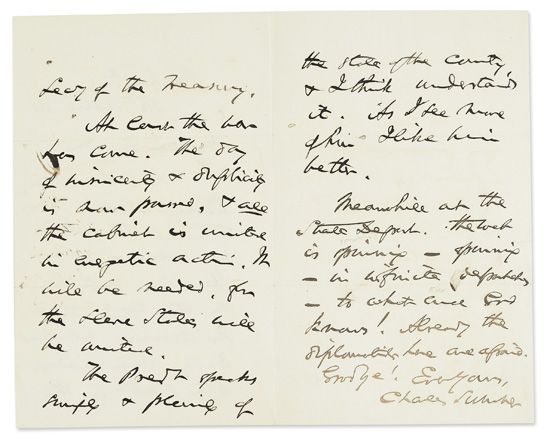 Secy of the Treasury.
At last the war
has come. The day
of insincerity & duplicity
is now passed, & all
the cabinet is united
in energetic action. It
will be needed, for
the slave states will
be united.
The Presdt speaks
simply & plainly of
the state of the country
& I think understands
it. As I see more
of him I like him
better.
Meanwhile at the
State Depart. the web
is spinning — spinning
— in infinite despatches
— to what end God
knows! Already the
diplomatists here are afraid.
Goodbye! Ever yours,
Charles Sumner